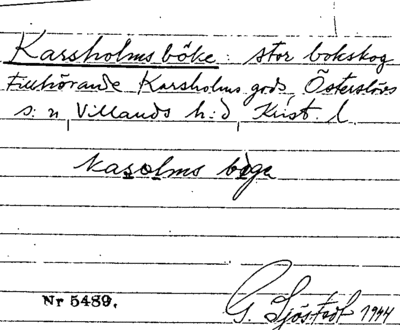 Karsholms böke: stor bokskog
tillhörande Karsholms gods, Österslövs
s:n, Villands h:d, Krist. l.
kasolms böge
Nr 5489.
G. Sjöstedt 1944